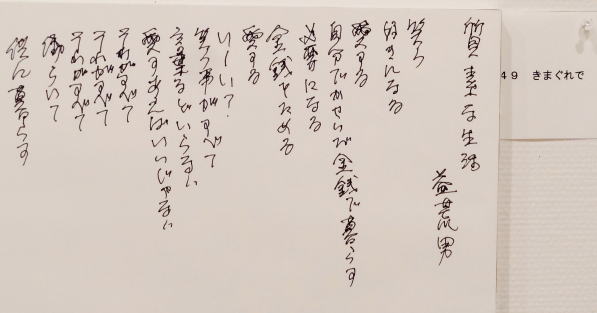 質素な生活
益荒男
笑う
好きになる
愛する
自分でかせいだ金銭で暮らす
必要になる
金銭をためる
愛する
いーい?
笑う事がすべて
言葉などいらない
愛しあえばいいじゃない
それがすべて
それがすべて
それがすべて
働らいて
暮らす
49 きまぐれで